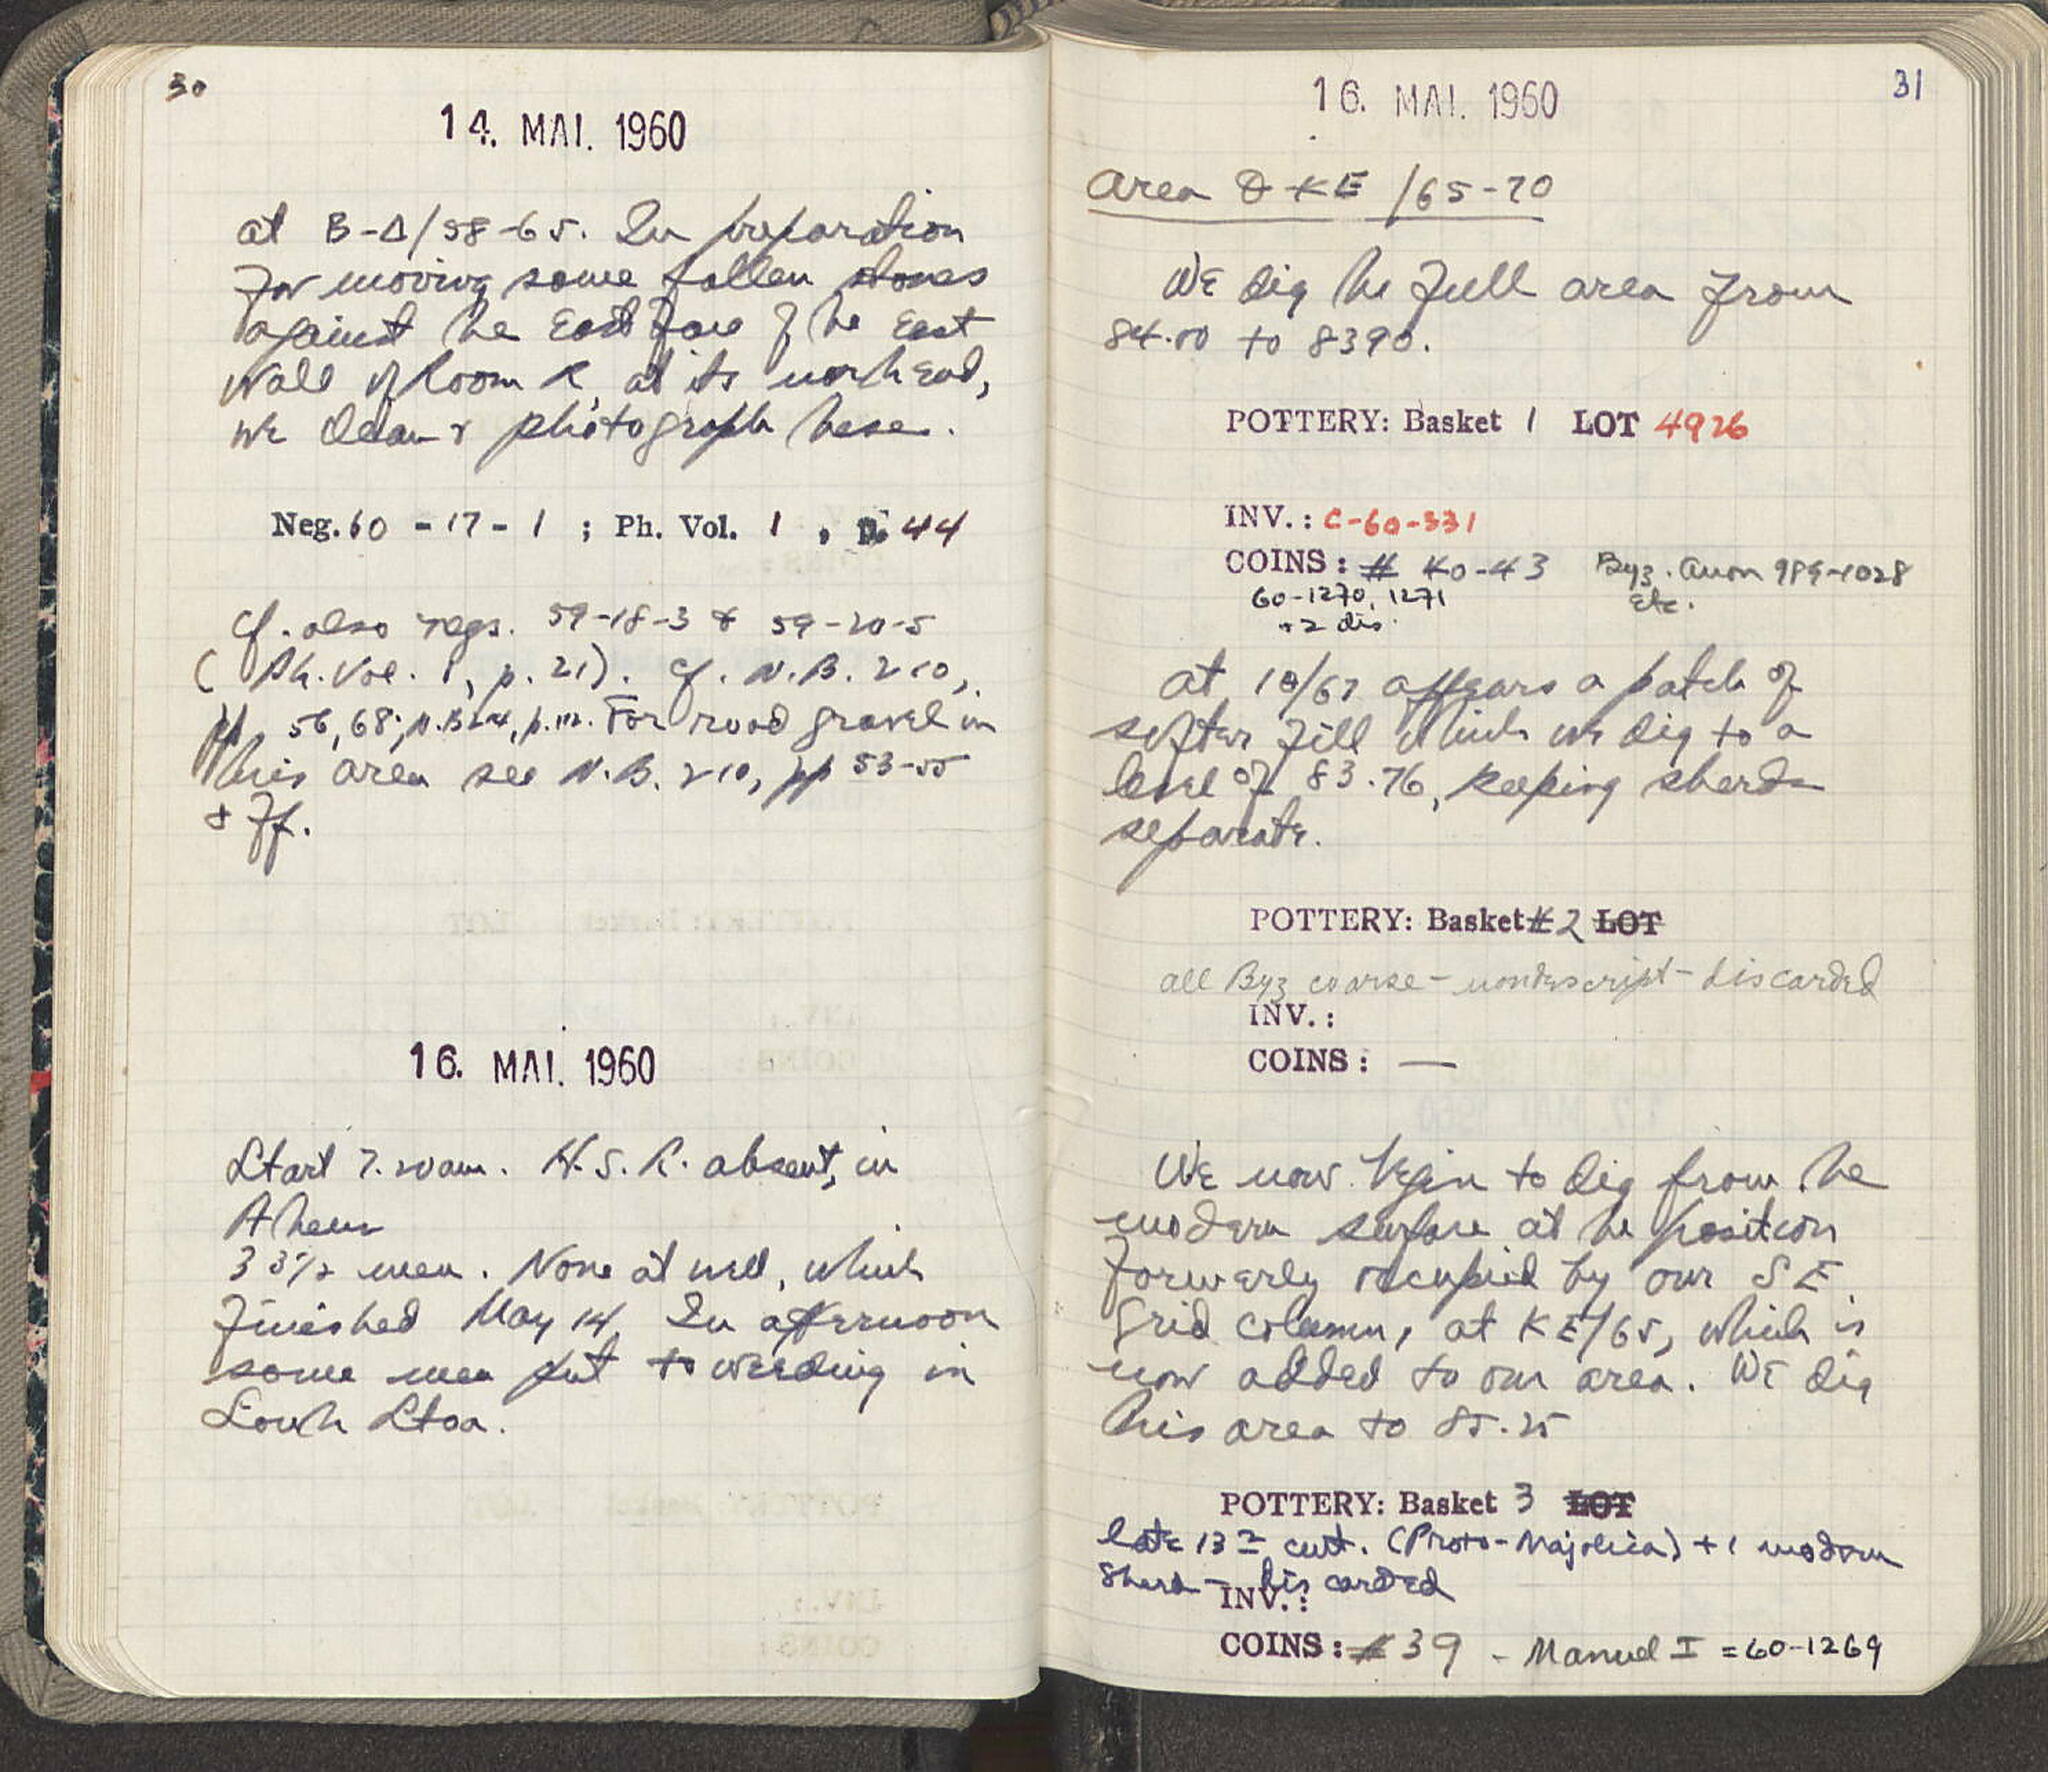 30
14. MAI. 1960
at B-Δ/58-65. In preparation
for moving some fallen stones
against the East face of the East
Wall of Room R, at its north End,
we clean & photograph these.
Neg. 60 - 17 - 1 ; Ph. Vol. 1 , p. 44
cf. also negs. 59-18-3 & 59-20-5
(Ph. Vol. 1, p. 21). cf. N.B. 210,
pp. 56, 68; N.B. p. For road gravel in
this area see N.B. 210, pp 53-55
& ff.
16. MAI. 1960
Start 7.20 am. H.S.R. absent, in
Athens
33½ men. None at well, which
finished May 14. In afternoon
some men put to weeding in
South Stoa.
31
16. MAI. 1960
Area KE /65-70
We dig the full area from
84.00 to 8390.
POTTERY: Basket 1 LOT 4926
INV.: C-60-331
COINS: # 40-43 Byz. Anon 989-1028
60-1270, 1271 Etc.
+2 dis.
At 10/67 appears a patch of
softer fill which we dig to a
level of 83.76, keeping sherds
separate.
POTTERY: Basket #2 LOT
all Byz coarse - nondescript - discarded
INV.:
COINS: —
We now begin to dig from the
modern surface at the position
formerly occupied by our SE
Grid column, at KE/65, which is
now added to our area. We dig
this area to 85.25
POTTERY: Basket 3 LOT
late 13th cent. (Proto-Majolica) + 1 modern
sherd - discarded
INV.:
COINS: #39 - Manuel I = 60-1269